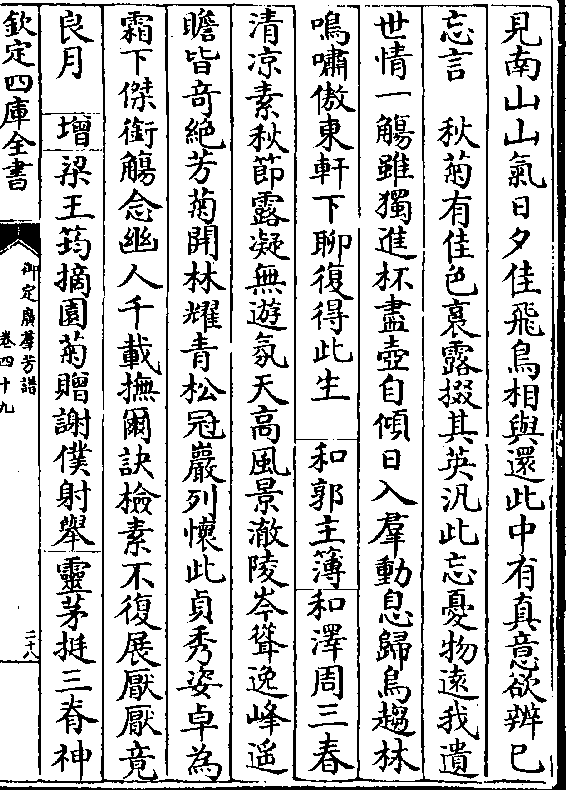 見南山山氣日夕佳飛鳥相與還此中有真意欲辨已
忘言　秋菊有佳色裛露掇其英汎此忘憂物遠我遺
世情一觴雖獨進杯盡壺自傾日入羣動息歸鳥趨林
鳴嘯傲東軒下聊復得此生　和郭主簿和澤周三春
清凉素秋節露凝無遊氛天高風景澈陵岑聳逸峰遥
瞻皆奇絶芳菊開林耀青松冠巖列懷此貞秀姿卓為
霜下傑銜觴念幽人千載撫爾訣檢素不復展厭厭竟
良月　增梁王筠摘園菊贈謝僕射舉靈茅挺三脊神
欽定四庫全書
御定廣羣芳譜
卷四十九
二十八